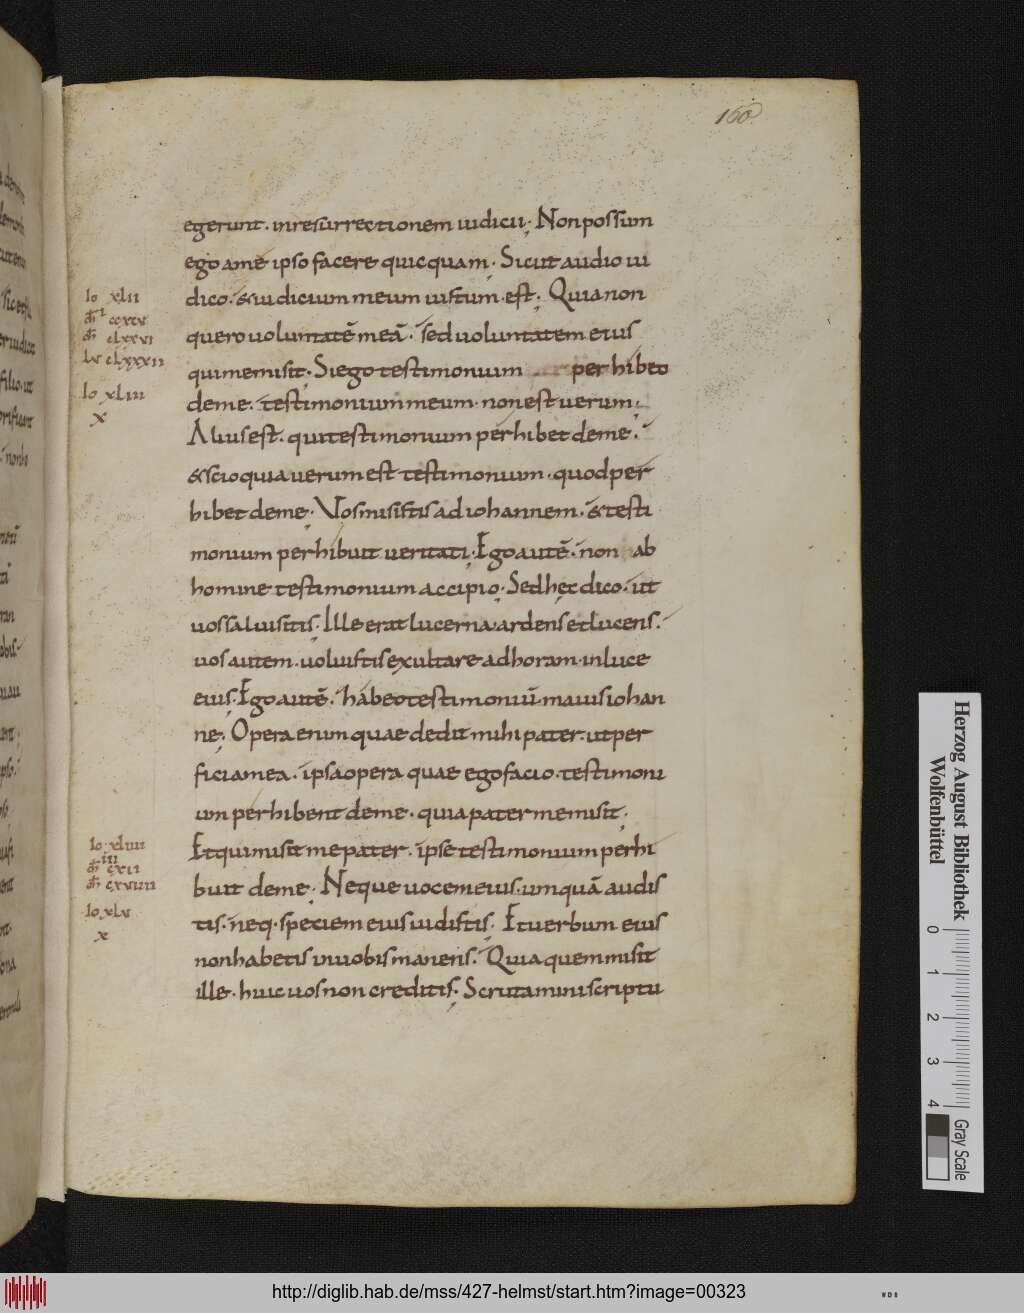 160
egerunt. inresurrectionem iudicii. Nonpossum
ego ame ipso facere quicquam. Sicut audio iu
dico. &iudicium meum iustum. est. Quia non
quero uoluntatē meā. sed uoluntatem eius
quimemisit. Siego testimonium perhibeo
deme. testimonium meum. non est uerum.
Alius est. quitestimonium perhibet deme.
&scio quia uerum est testimonium. quod per
hibet deme. Vos misistis ad iohannem. & testi
monium perhibuit ueritati. Ego autē. non ab
homine testimonium accipio. Sed hęc dico. ut
uos salui sitis. Ille erat lucerna. ardens et lucens.
uos autem. uoluistis exultare ad horam. inluce
eius. Ego autē. habeo testimoniū. maius iohan
ne. Opera enim quae dedit mihi pater. ut per
ficiam ea. ipsa opera quae ego facio. testimoni
um perhibent deme. quia pater me misit.
Et qui misit me pater. ipse testimonium perhi
buit deme. Neque uocem eius. umquā audis
tis. neq. speciem eius uidistis. Et uerbum eius
non habetis in uobis manens. Quia quem misit
ille. huic uos non creditis. Scrutamini scriptu
Io xlii
Lu clxxxii
Io xliii
x
Io xliiii
Io xlv
x
Herzog August Bibliothek
Wolfenbüttel
0 1 2 3 4 Gray Scale
http://diglib.hab.de/mss/427-helmst/start.htm?image=00323